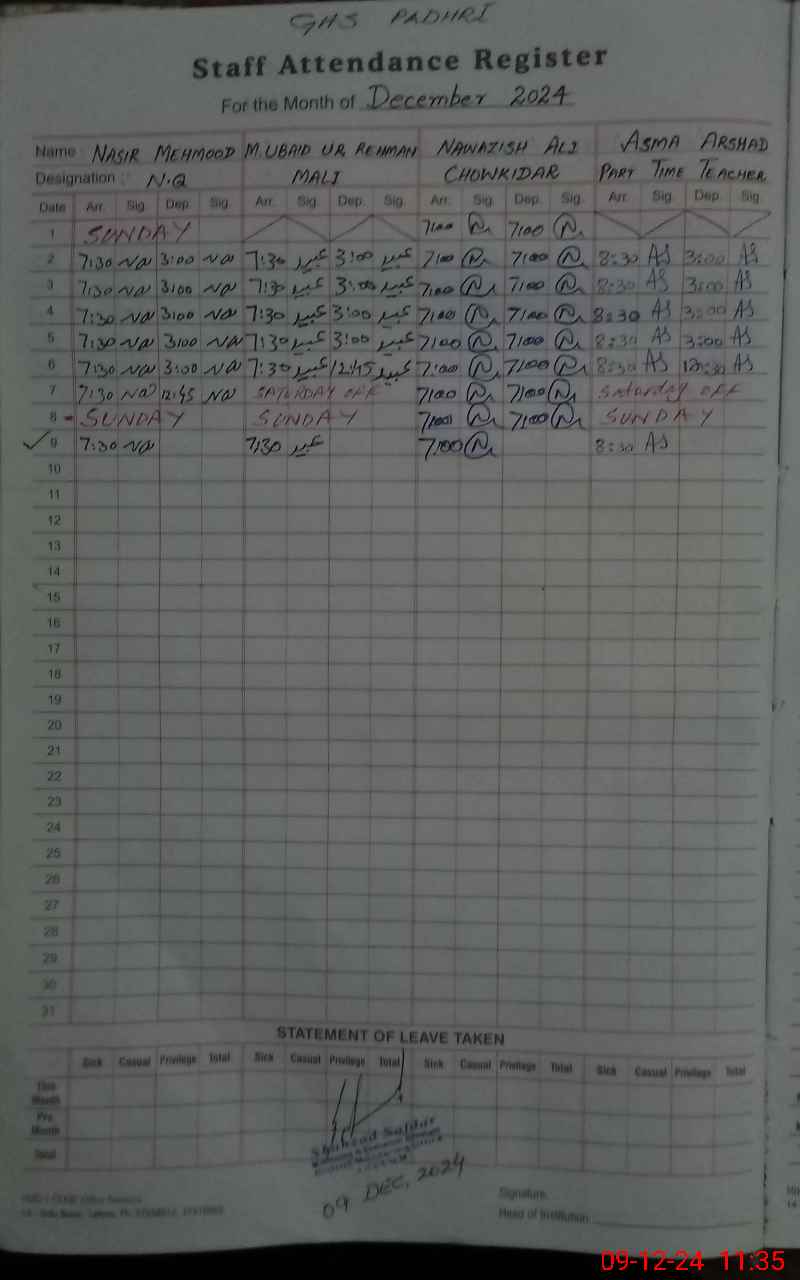 GHS PADHRI
Staff Attendance Register
For the Month of December 2024
Name : NASIR MEHMOOD M. UBAID UR REHMAN NAWAZISH ALI ASMA ARSHAD
Designation : N.Q MALI CHOWKIDAR PART TIME TEACHER
Date Arr. Sig. Dep. Sig. Arr. Sig. Dep. Sig. Arr. Sig. Dep. Sig. Arr. Sig. Dep. Sig.
1 SUNDAY 7:00 7:00
2 7:30 Na 3:00 Na 7:30 عبید 3:00 عبید 7:00 7:00 8:30 AS 3:00 AS
3 7:30 Na 3:00 Na 7:30 عبید 3:00 عبید 7:00 7:00 8:30 AS 3:00 AS
4 7:30 Na 3:00 Na 7:30 عبید 3:00 عبید 7:00 7:00 8:30 AS 3:00 AS
5 7:30 Na 3:00 Na 7:30 عبید 3:00 عبید 7:00 7:00 8:30 AS 3:00 AS
6 7:30 Na 3:00 Na 7:30 عبید 12:45 عبید 7:00 7:00 8:30 AS 12:30 AS
7 7:30 Na 12:45 Na SATURDAY OFF 7:00 7:00 Saturday OFF
8 SUNDAY SUNDAY 7:00 7:00 SUNDAY
9 7:30 Na 7:30 عبید 7:00 8:30 AS
10
11
12
13
14
15
16
17
18
19
20
21
22
23
24
25
26
27
28
29
30
31
STATEMENT OF LEAVE TAKEN
Sick Casual Privilege Total Sick Casual Privilege Total Sick Casual Privilege Total Sick Casual Privilege Total
This Month
Pre. Month
Total
Shahzad Safdar
09 DEC, 2024
Signature
Head of Institution
09-12-24 11:35